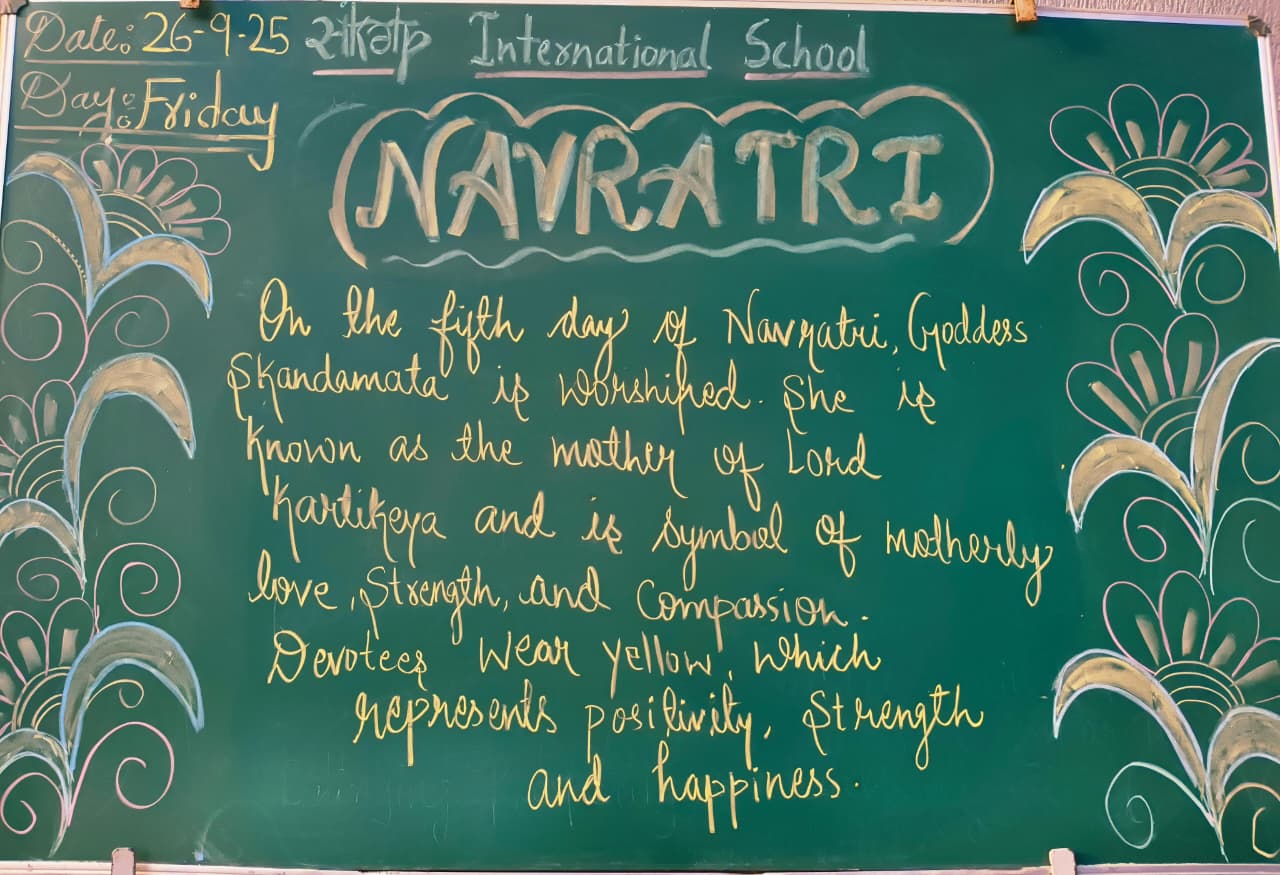 Date: 26-9-25 International School
Day: Friday
NAVRATRI
On the fifth day of Navratri, Goddess
Skandamata is worshiped. She is
known as the mother of Lord
Kartikeya and is symbol of motherly
love, Strength, and Compassion.
Devotees wear yellow, which
represents positivity, Strength
and happiness.